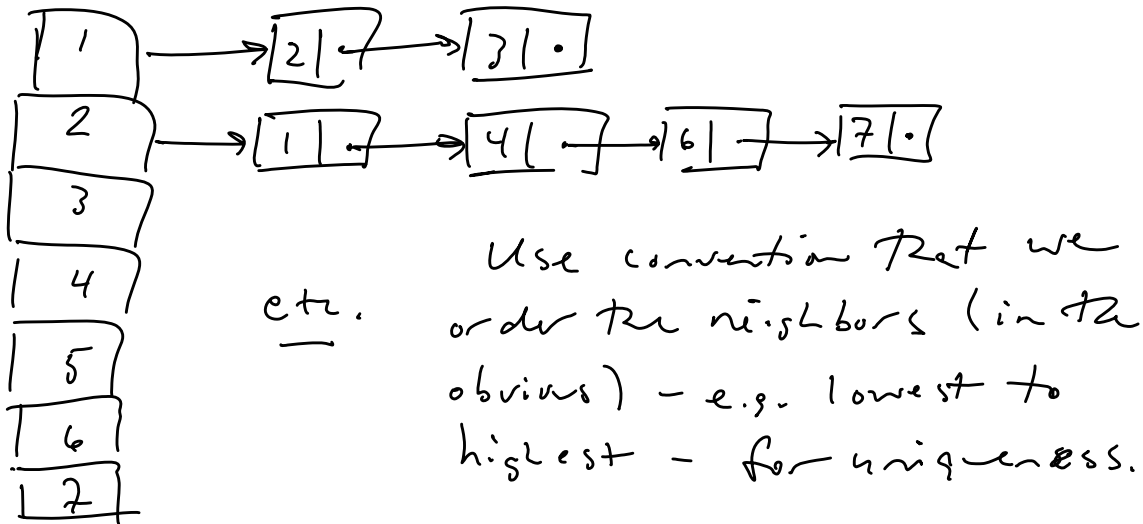 1 2 3 .
2 1 4 6 7 .
3
4
5
6
7
etc.
Use convention that we
order the neighbors (in the
obvious) - e.g. lowest to
highest - for uniqueness.